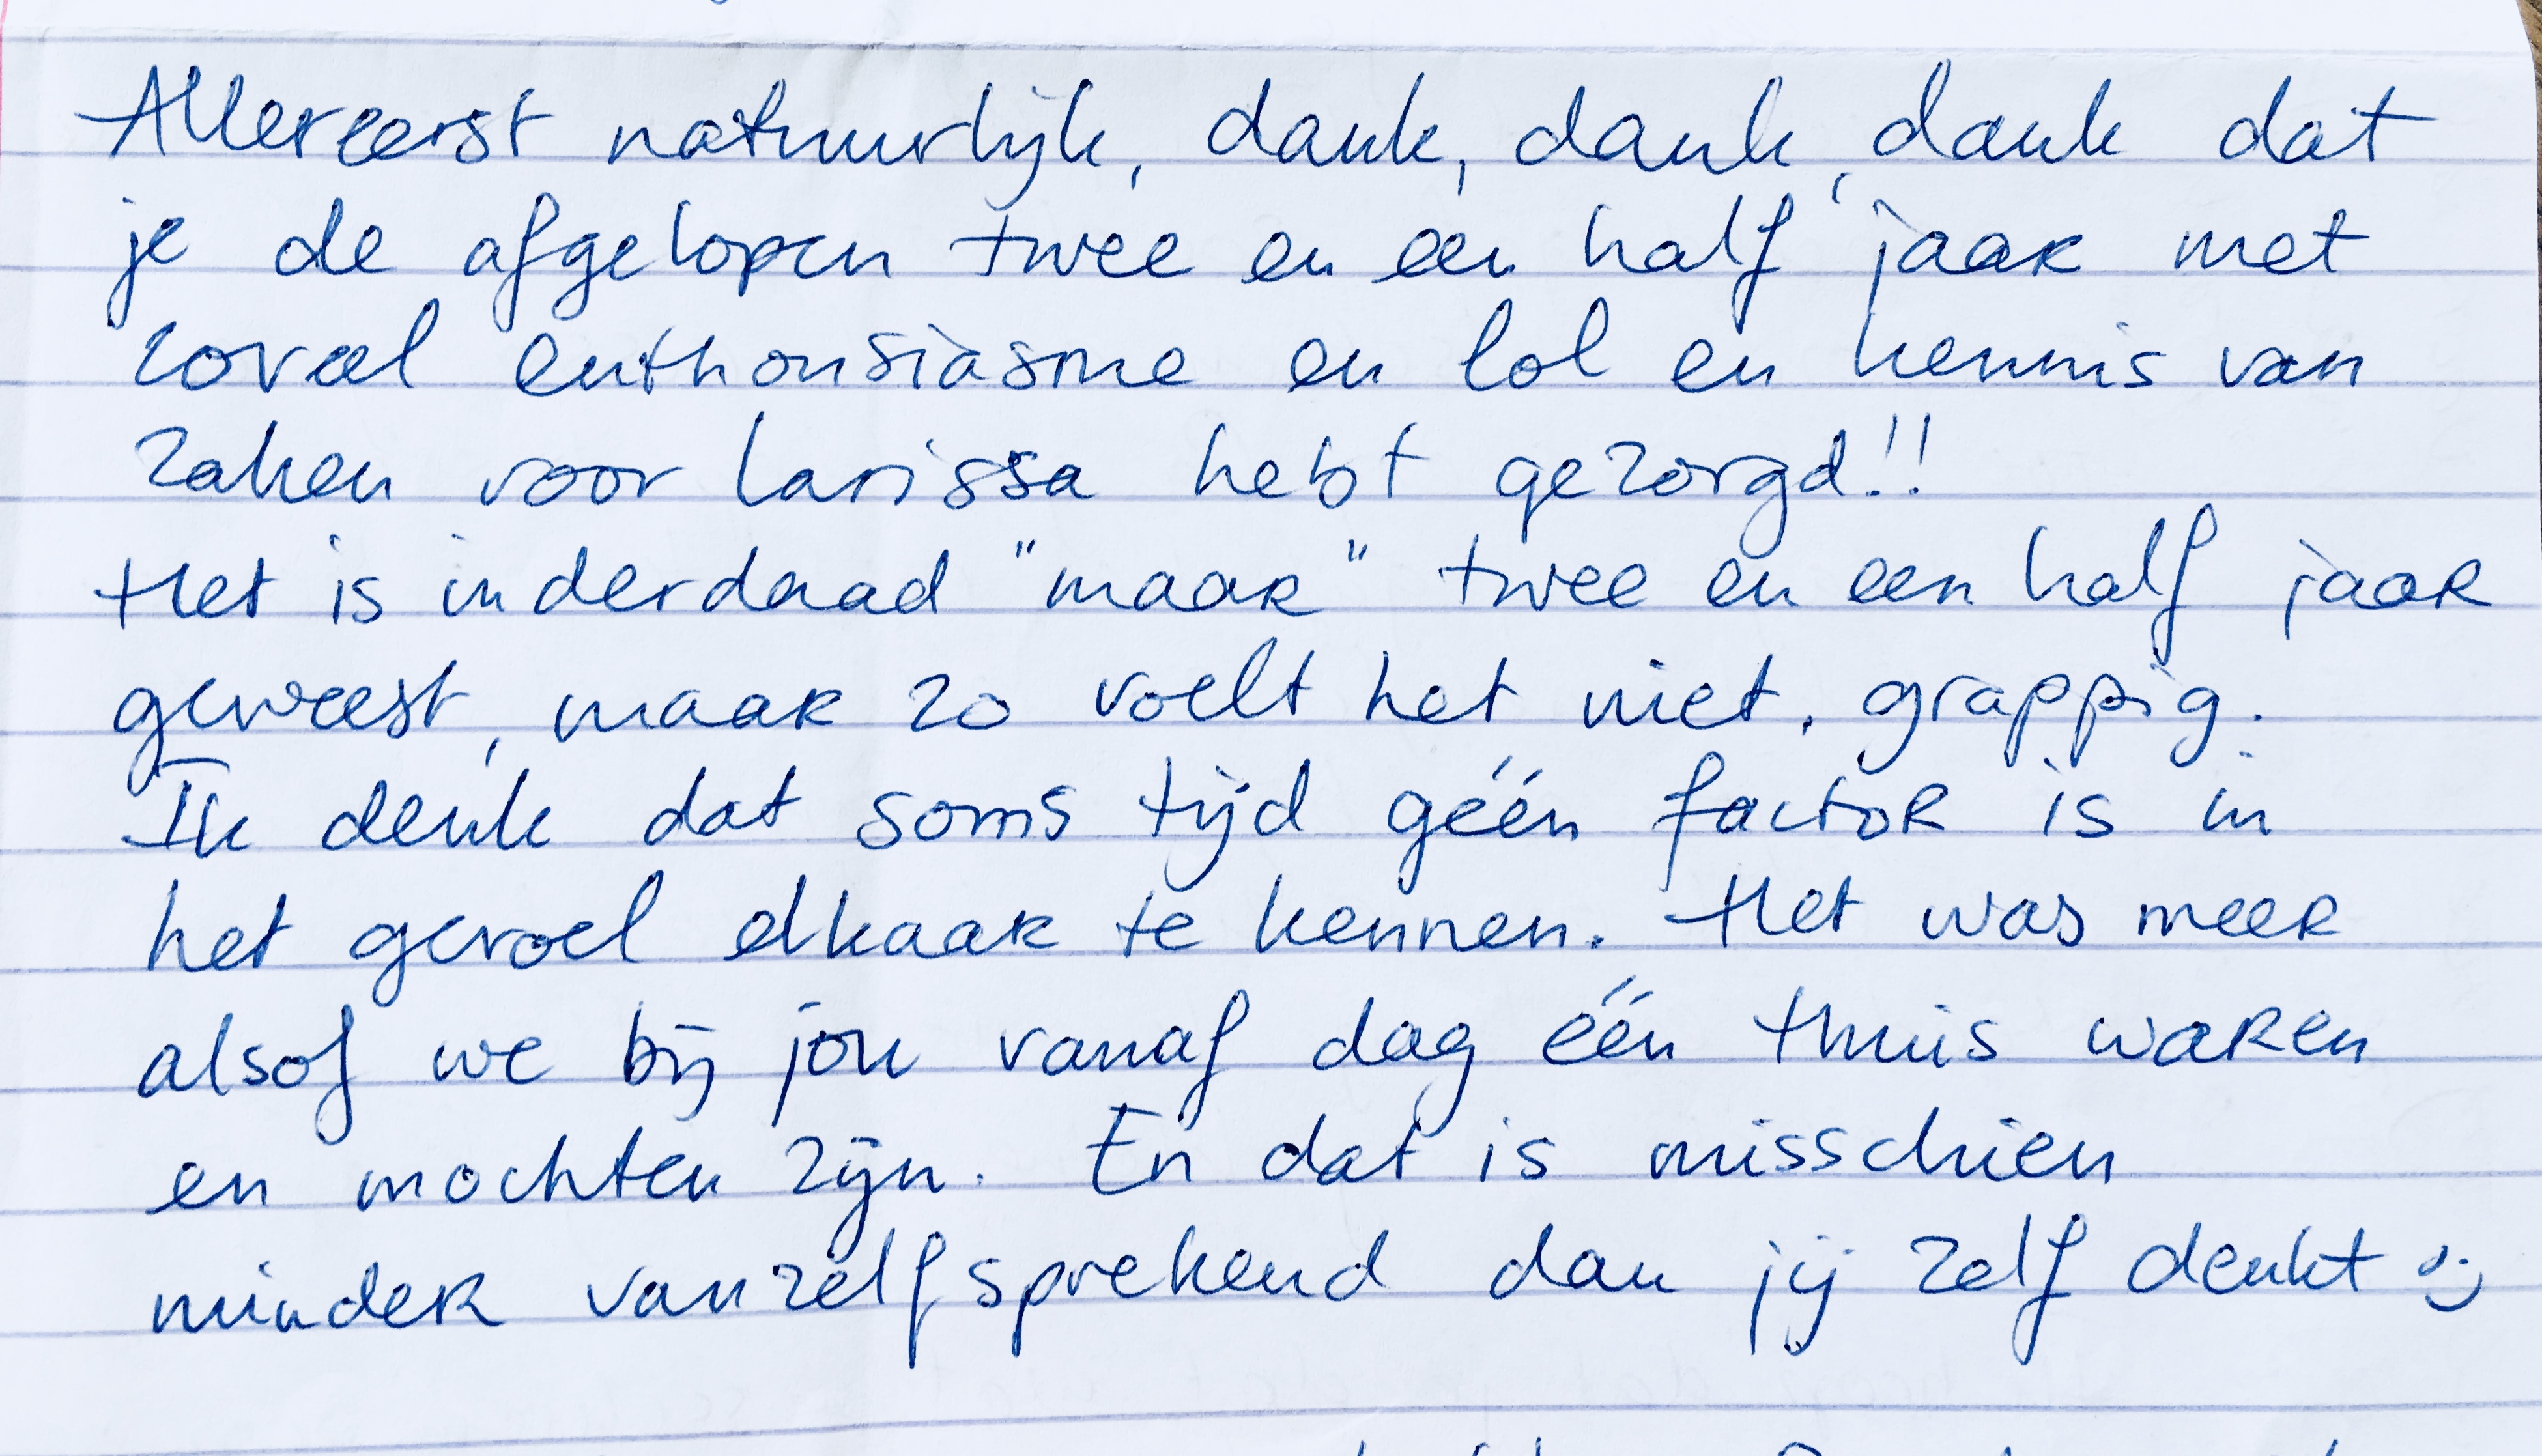 Allereerst natuurlijk, dank, dank, dank dat
je de afgelopen twee en een half jaar met
zoveel enthousiasme en lol en kennis van
zaken voor Larissa hebt gezorgd!!
Het is inderdaad "maar" twee en een half jaar
geweest, maar zo voelt het niet, grappig.
Ik denk dat soms tijd géén factor is in
het gevoel elkaar te kennen. Het was meer
alsof we bij jou vanaf dag één thuis waren
en mochten zijn. En dat is misschien
minder vanzelfsprekend dan jij zelf denkt :)